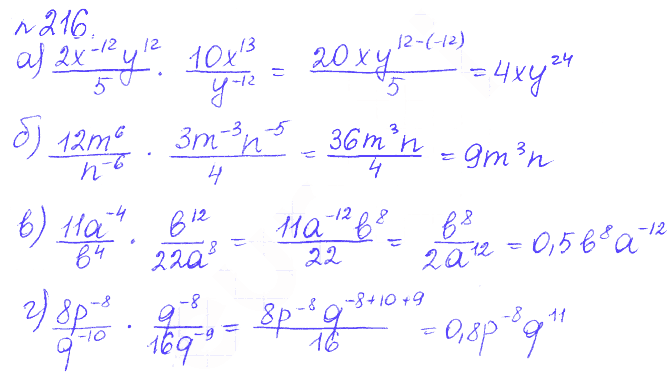 № 216.
а) \frac{2x^{-12}y^{12}}{5} \cdot \frac{10x^{13}}{y^{-12}} = \frac{20xy^{12-(-12)}}{5} = 4xy^{24}
б) \frac{12m^{6}}{n^{-6}} \cdot \frac{3m^{-3}n^{-5}}{4} = \frac{36m^{3}n}{4} = 9m^{3}n
в) \frac{11a^{-4}}{b^{4}} \cdot \frac{b^{12}}{22a^{8}} = \frac{11a^{-12}b^{8}}{22} = \frac{b^{8}}{2a^{12}} = 0,5b^{8}a^{-12}
г) \frac{8p^{-8}}{q^{-10}} \cdot \frac{q^{-8}}{16q^{-9}} = \frac{8p^{-8}q^{-8+10+9}}{16} = 0,8p^{-8}q^{11}